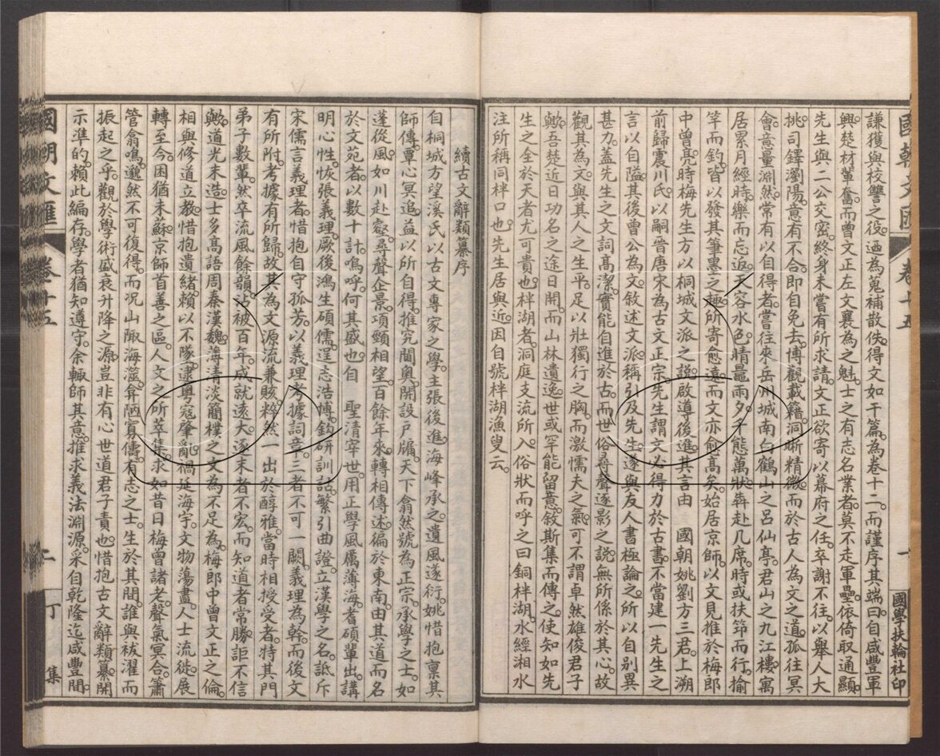 國朝文匯 卷十五 一 國學扶輪社印
謙獲與校讐之役迺為蒐補散佚得文如干篇為卷十二而謹序其端曰自咸豐軍
興楚材輩奮而曾文正左文襄為之魁士之有志名業者莫不走軍壘依倚取通顯
先生與二公交密終身未嘗有所求請文正欲寄以幕府之任卒謝不往以舉人大
挑司鐸瀏陽意有不合即自免去博觀載籍洞晰精微而於古人為文之道孤往冥
會意量淵然常有以自得者嘗往來岳州城南白鶴山之呂仙亭君山之九江樓寓
居累月經時樂而忘返天容水色情鼉雨夕千態萬狀犇赴几席時或扶筇而行揄
竿而釣皆以發其筆墨之趣所寄愈遠而文亦愈高矣始居京師以文見推於梅郎
中曾亮時梅先生方以桐城文派之說啟導後進其言由 國朝姚劉方三君上溯
前歸震川氏以嗣晉唐宋為古文正宗先生謂文必得力於古書不當建一先生之
言以自隘其後曾公為文敘述文派稱引及先生遂與友人書極論之所以自別異
甚力蓋先生之文詞高潔實能自進於古而世俗尋聲逐影之說無所係於其心故
觀其為文與其人之生平足以壯獨行之胸而激懦夫之氣可不謂卓然雄俊君子
歟吾楚近日功名之途日開而山林遺逸世或罕能留意敘斯集而傳之使知如先
生之全於天者尤可貴也柈湖者洞庭支流所入俗狀而呼之曰銅柈湖水經湘水
注所稱同柈口也先生居與近因自號柈湖漁叟云
續古文辭類纂序
自桐城方望溪氏以古文專家之學主張後進海峰承之遺風遂衍姚惜抱稟其
師傳覃心冥追益以所自得推究閫奧開設戶牖天下翕然號為正宗承學之士如
蓬從風如川赴壑尋聲企景項領相望百餘年來轉相傳述徧於東南由其道而名
於文苑者以數十計嗚呼何其盛也自 聖清宰世用正學風厲薄海耆碩輩出講
明心性恢張義理厥後鴻生碩儒逞志浩博鉤研訓詁繁引曲證立漢學之名詆斥
宋儒言義理者惜抱自守孤芳以義理考據詞章三者不可一闕義理為幹而後文
有所附考據有所歸故其為文源流兼賅粹然一出於醇雅當時相授受者特其門
弟子數輩然卒流風餘韻沾被百年成就遠大逐末者不宏而知道者常勝詎不信
歟道光末造士多高語周秦漢魏薄清淡簡樸之文為不足為梅郎中曾文正之倫
相與修道立教惜抱遺緒賴以不隊逮粵寇肇亂禍延海宇文物蕩盡人士流徙展
轉至今困猶未蘇京師首善之區人文之所萃集求如昔日梅曾諸老聲氣冥合簫
管翕鳴邈然不可復得而況山陬海澨弇陋寡儔有志之士生於其閒誰與祓濯而
振起之乎觀於學術盛衰升降之源豈非有心世道君子責也惜抱古文辭類纂開
示準的賴此編存學者猶知遵守余輙師其意推求義法淵源采自乾隆迄咸豐閒
國朝文匯 卷十五 二 丁集